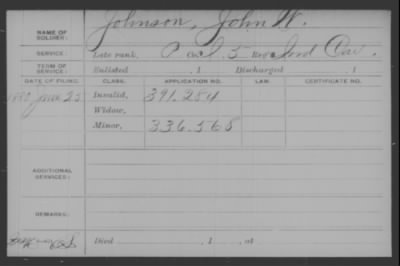 NAME OF SOLDIER: Johnson, John W.
SERVICE: Late rank, Co. I, 5 Reg Ind Cav.
TERM OF SERVICE: Enlisted , 1 Discharged , 1
DATE OF FILING. CLASS. APPLICATION NO. LAW. CERTIFICATE NO.
1880 June 25 Invalid, 391.254
Widow,
Minor, 336.568
ADDITIONAL SERVICES:
REMARKS:
Died , 1 , at